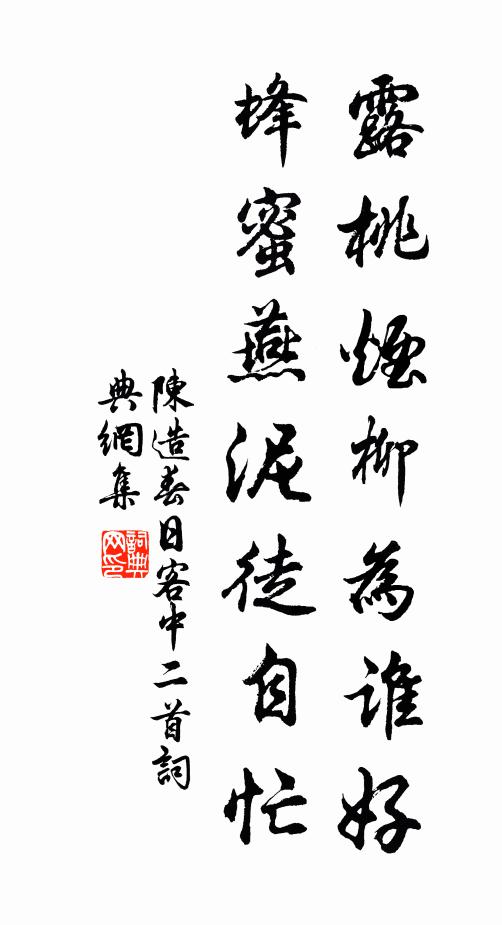 露桃煙柳為誰好
蜂蜜燕泥徒自忙
陳造春日客中二首詞
典網集
詞典
网印